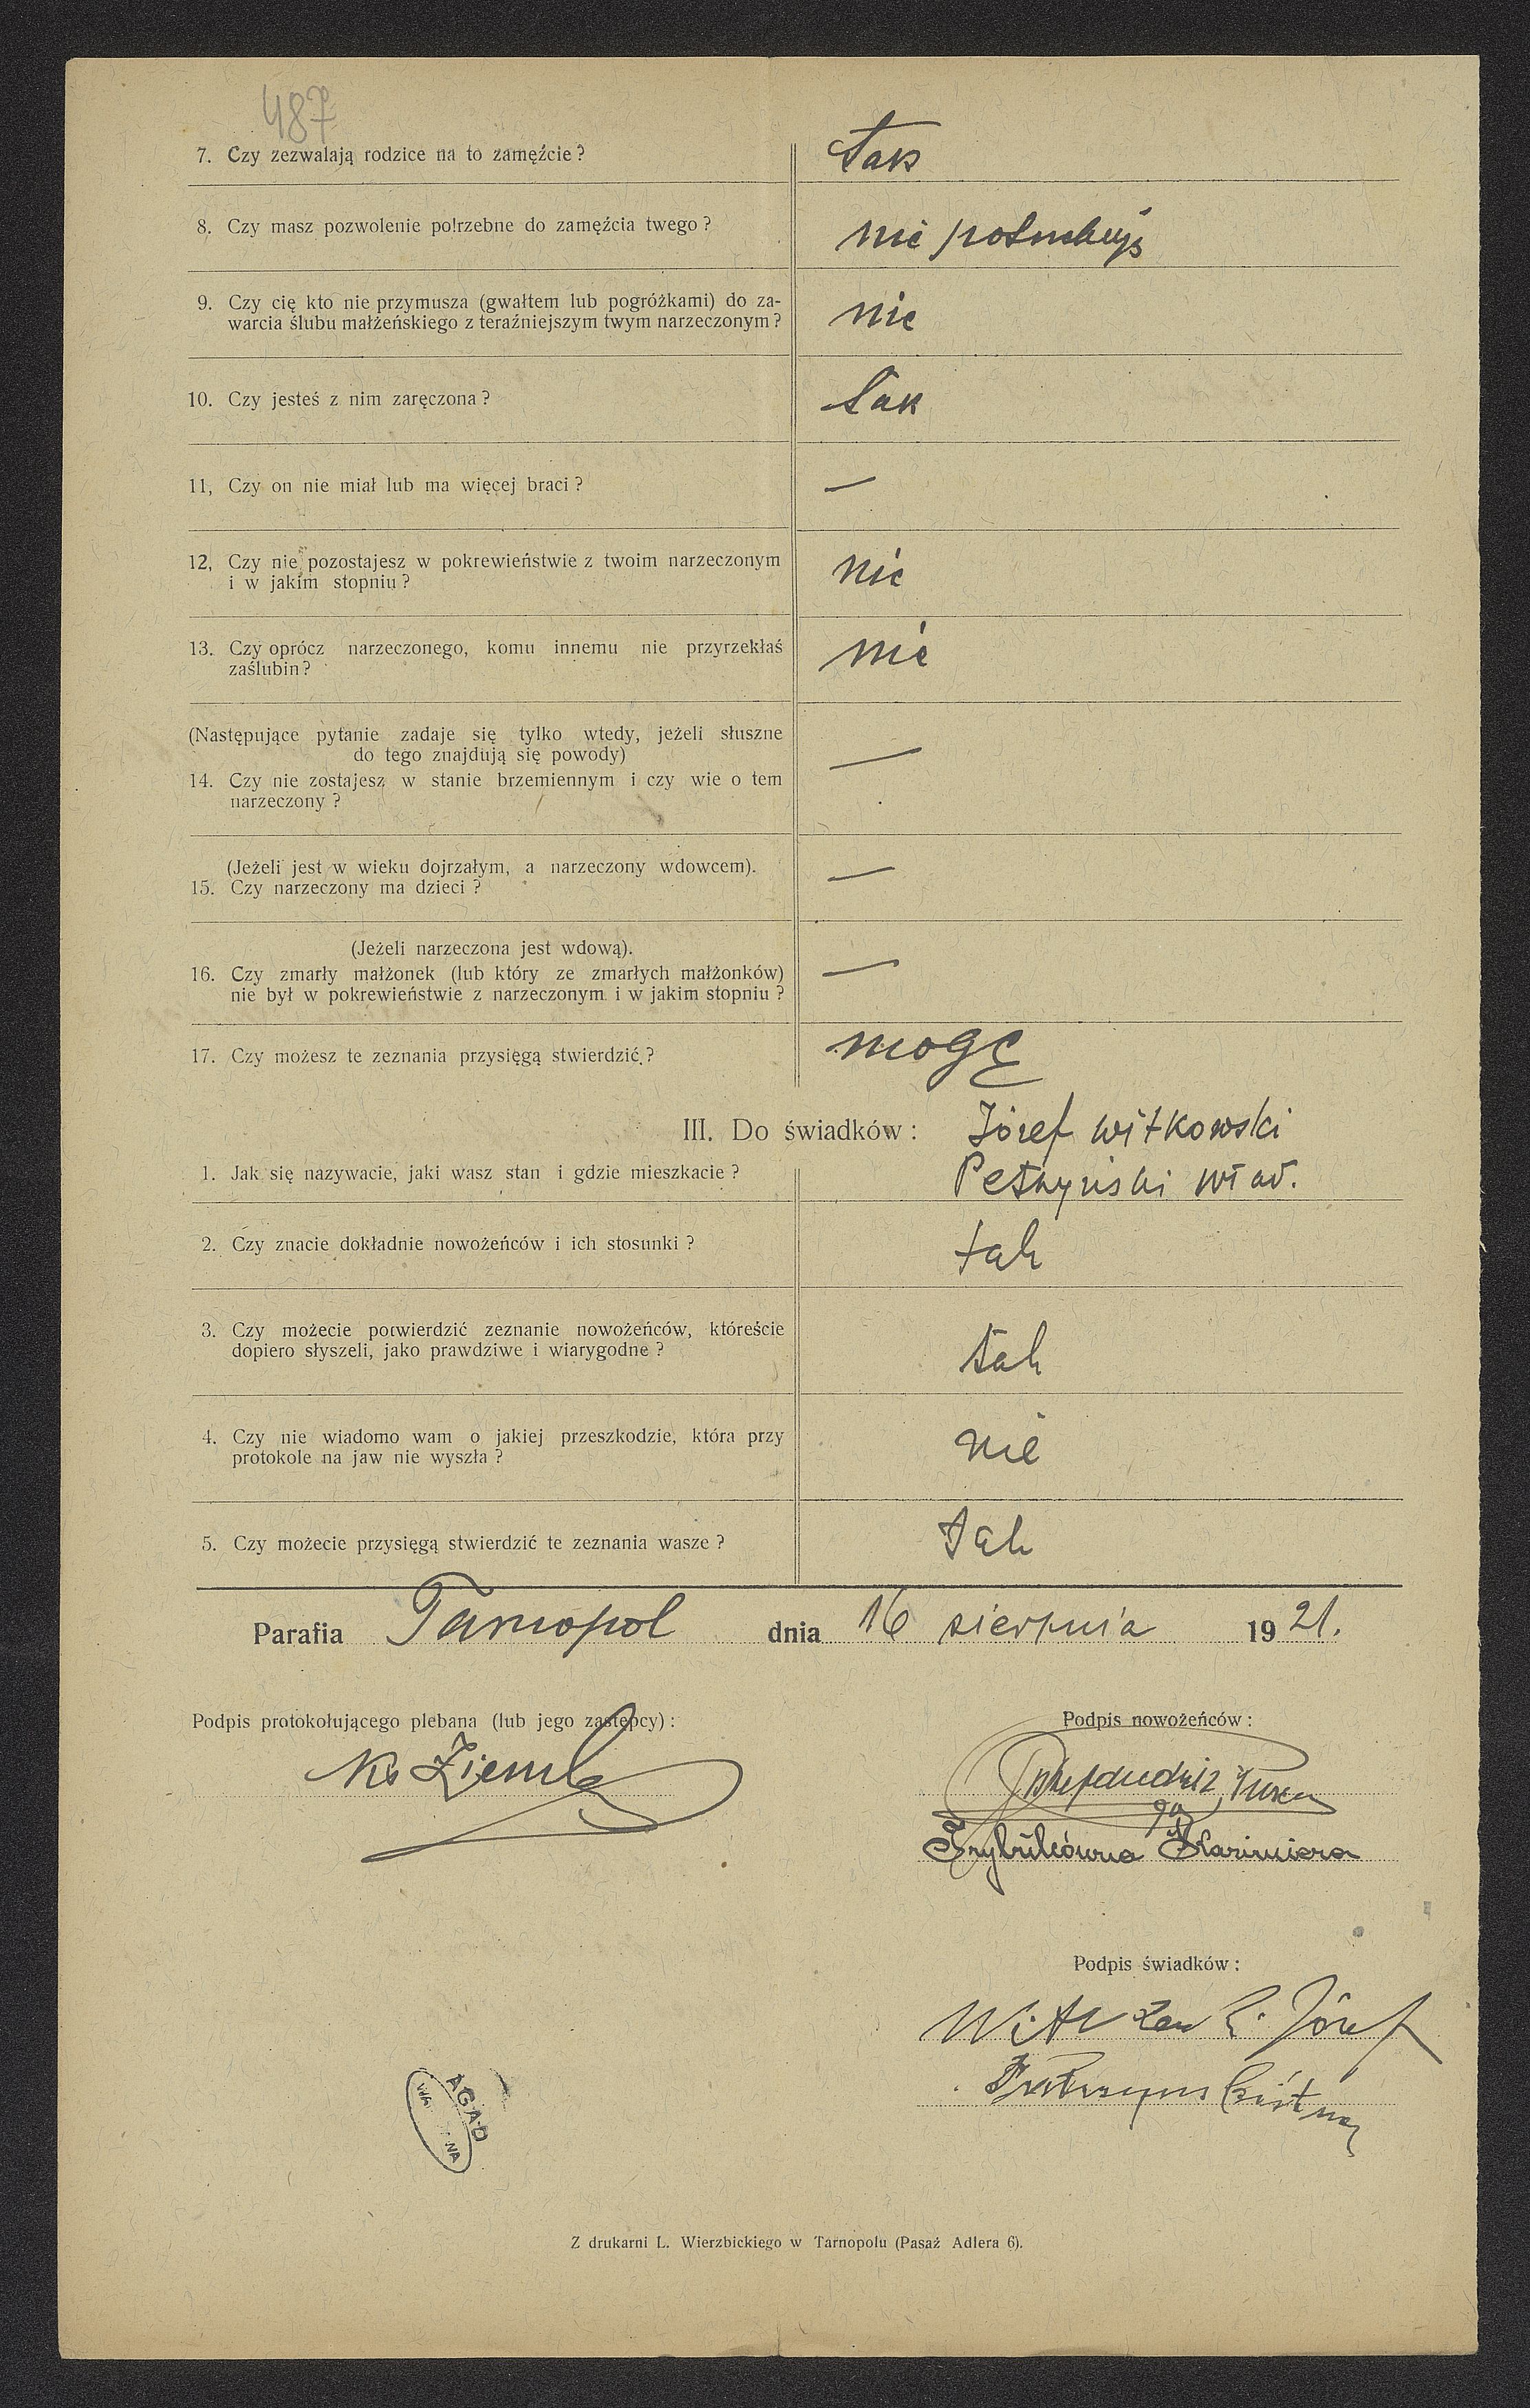 487
7. Czy zezwalają rodzice na to zamęźcie? Tak
8. Czy masz pozwolenie potrzebne do zamęźcia twego? nie potrzebuję
9. Czy cię kto nie przymusza (gwałtem lub pogróżkami) do za-
warcia ślubu małżeńskiego z teraźniejszym twym narzeczonym? nie
10. Czy jesteś z nim zaręczona? tak
11, Czy on nie miał lub ma więcej braci? —
12, Czy nie pozostajesz w pokrewieństwie z twoim narzeczonym
i w jakim stopniu? nie
13. Czy oprócz narzeczonego, komu innemu nie przyrzekłaś
zaślubin? nie
(Następujące pytanie zadaje się tylko wtedy, jeżeli słuszne
do tego znajdują się powody)
14. Czy nie zostajesz w stanie brzemiennym i czy wie o tem
narzeczony? —
(Jeżeli jest w wieku dojrzałym, a narzeczony wdowcem).
15. Czy narzeczony ma dzieci? —
(Jeżeli narzeczona jest wdową).
16. Czy zmarły małżonek (lub który ze zmarłych małżonków)
nie był w pokrewieństwie z narzeczonym i w jakim stopniu? —
17. Czy możesz te zeznania przysięgą stwierdzić? mogę
III. Do świadków: Józef Witkowski
1. Jak się nazywacie, jaki wasz stan i gdzie mieszkacie? Petryński Wład.
2. Czy znacie dokładnie nowożeńców i ich stosunki? tak
3. Czy możecie potwierdzić zeznanie nowożeńców, któreście
dopiero słyszeli, jako prawdziwe i wiarygodne? tak
4. Czy nie wiadomo wam o jakiej przeszkodzie, która przy
protokole na jaw nie wyszła? nie
5. Czy możecie przysięgą stwierdzić te zeznania wasze? Tak
Parafia Tarnopol dnia 16 sierpnia 1921.
Podpis protokołującego plebana (lub jego zastępcy):
Ks Ziemba
Podpis nowożeńców:
Kazimiera
Podpis świadków:
Józef
A.G.A.D
Z drukarni L. Wierzbickiego w Tarnopolu (Pasaż Adlera 6).